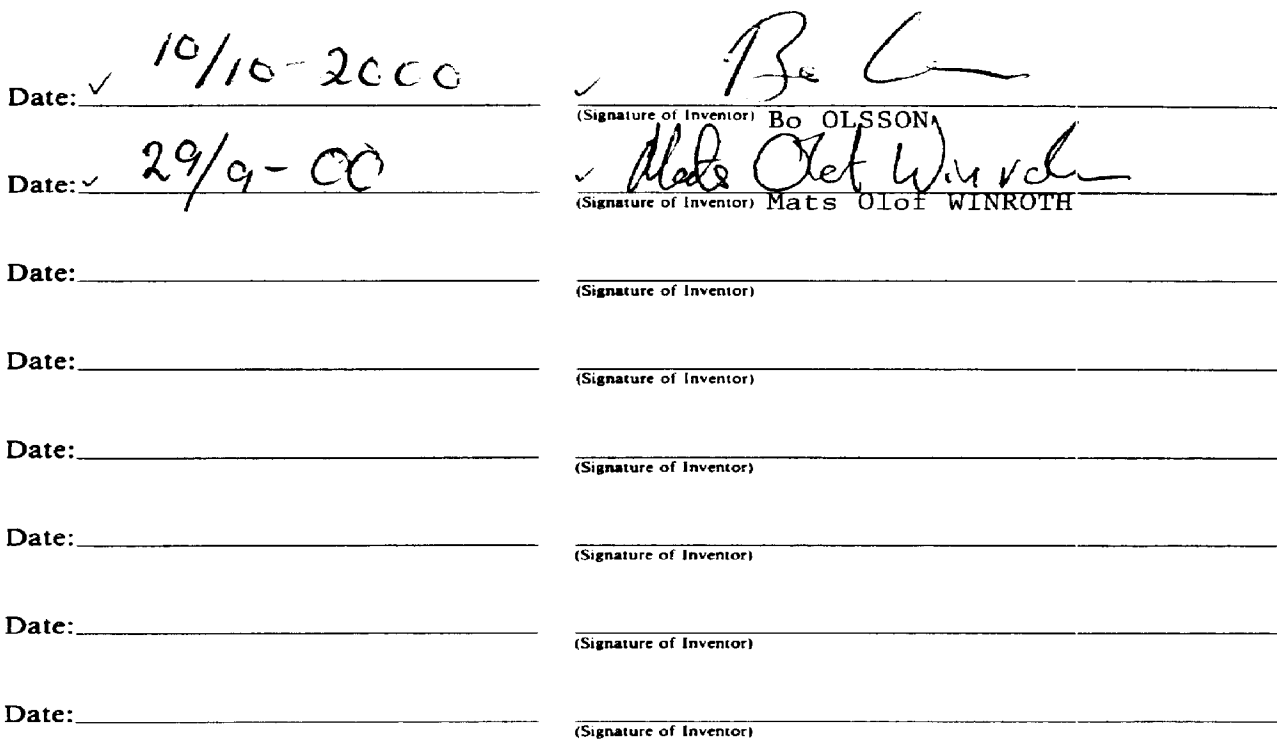 Date: ✓ 10/10-2000 ✓ Bo
(Signature of Inventor) Bo OLSSON
Date: ✓ 29/9-00 ✓ Mats Olof Winroth
(Signature of Inventor) Mats Olof WINROTH
Date:
(Signature of Inventor)
Date:
(Signature of Inventor)
Date:
(Signature of Inventor)
Date:
(Signature of Inventor)
Date:
(Signature of Inventor)
Date:
(Signature of Inventor)